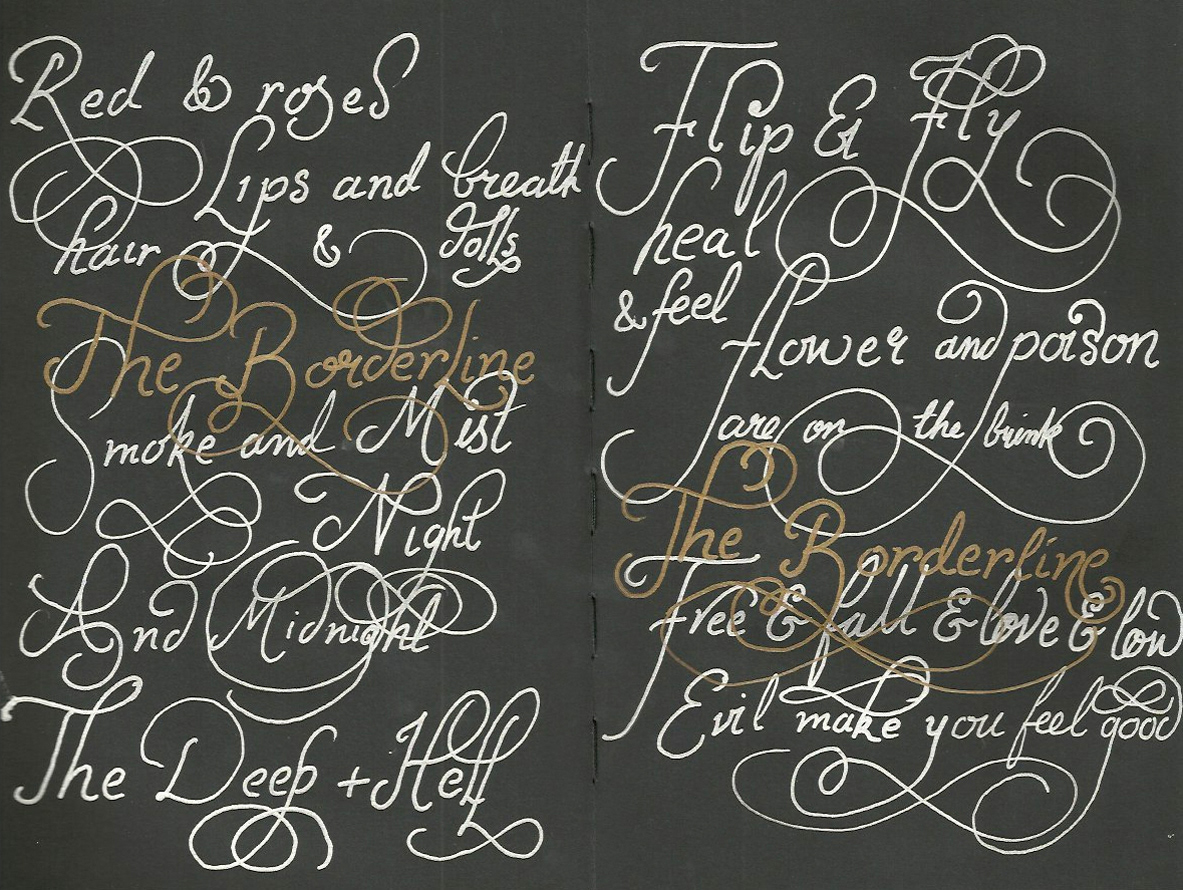 Red & roses
Lips and breath
hair & dolls
The Borderline
Smoke and Mist
Night
And Midnight
The Deep + Hell
Flip & Fly
heal
& feel
flower and poison
are on the brink
The Borderline
Free & fall & love & low
Evil make you feel good